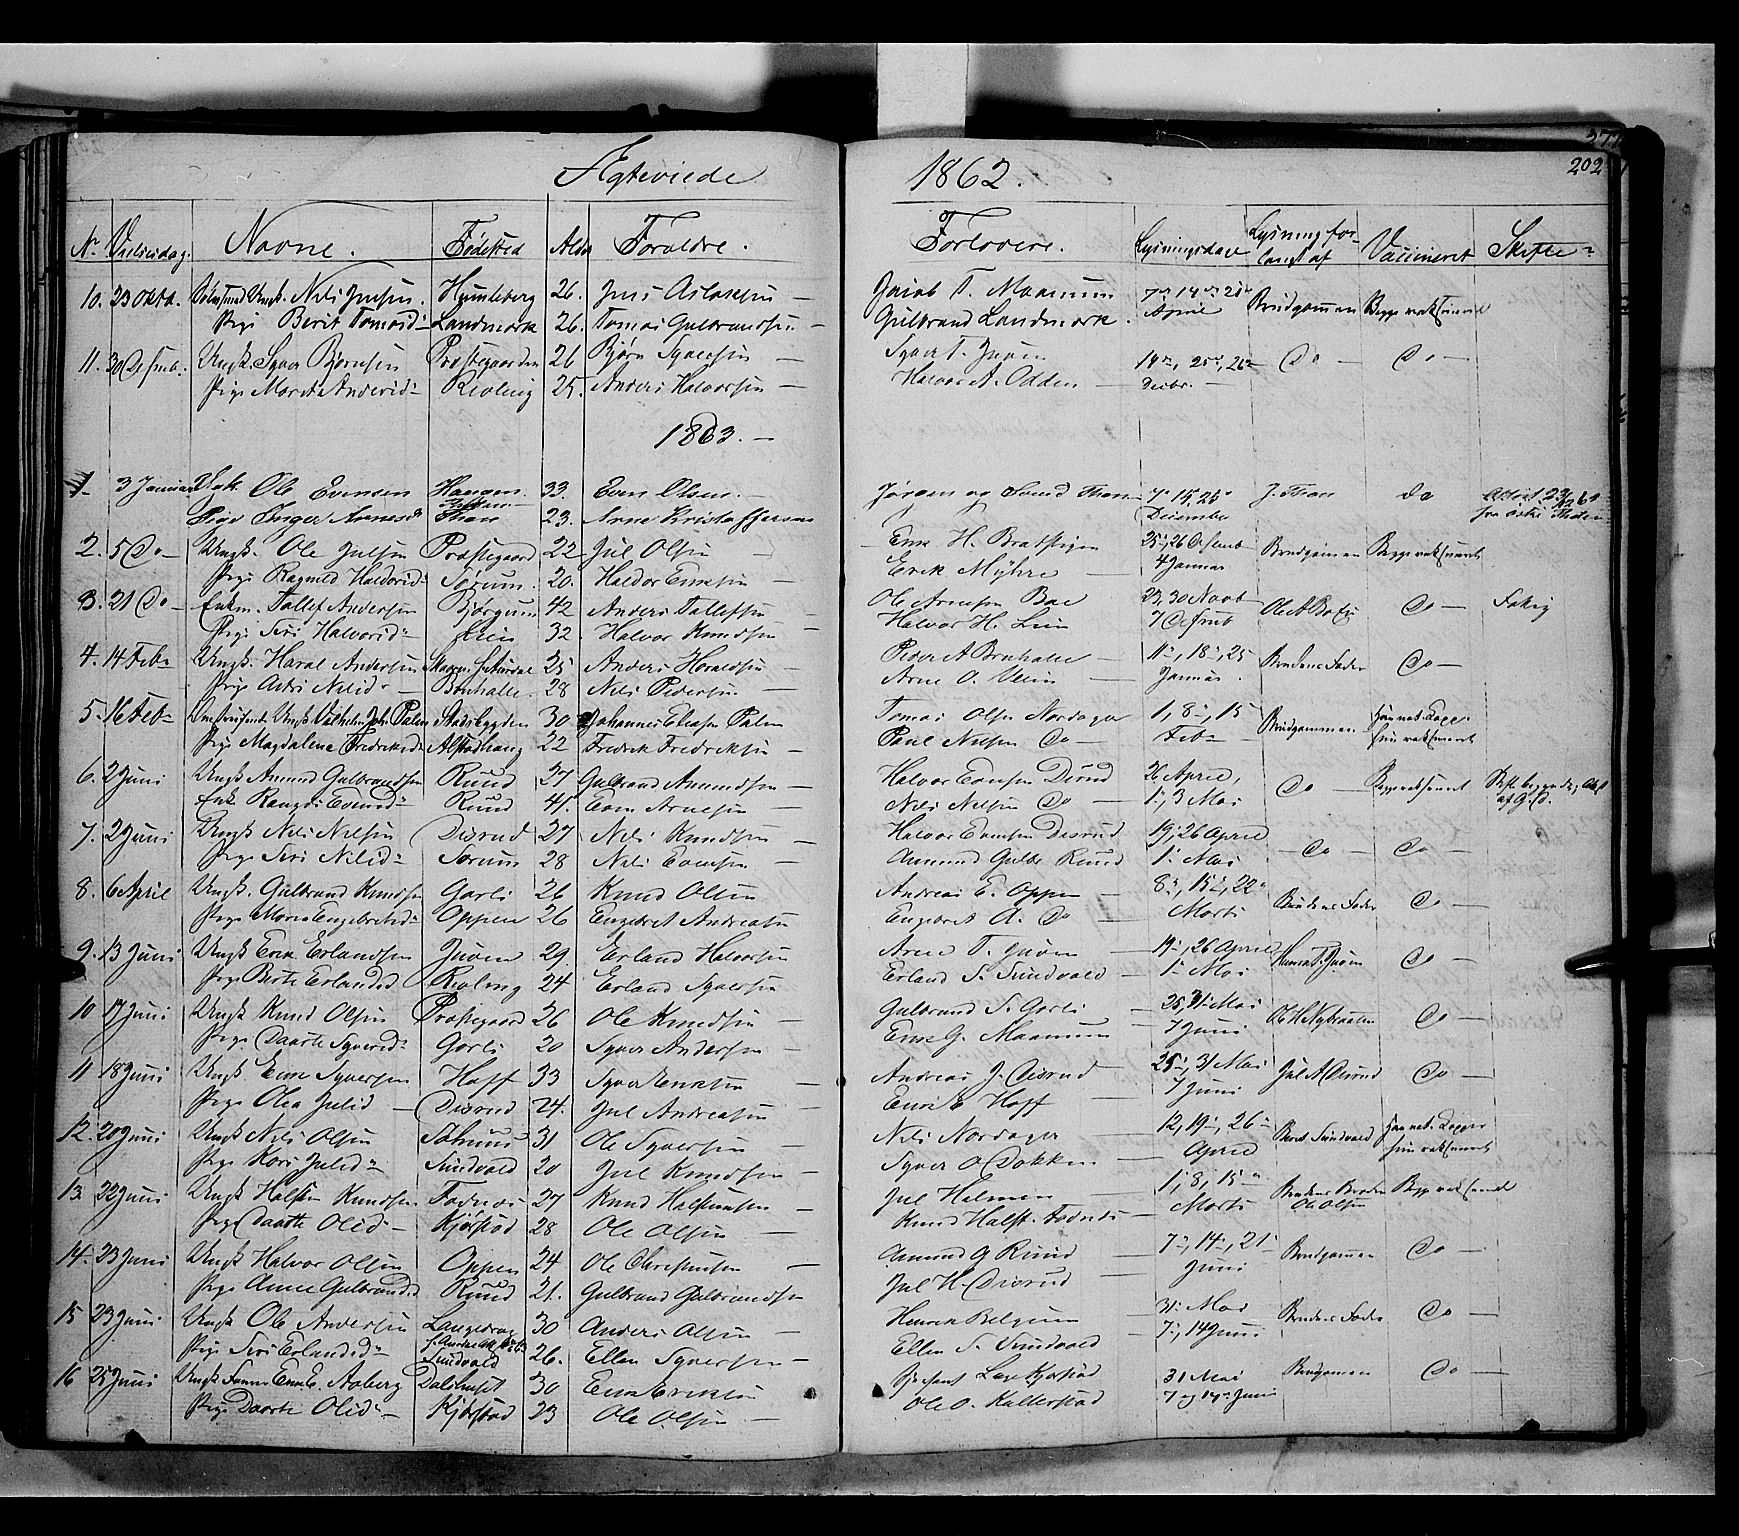 Ægteviede
1862.
202
No Vielsesdag. Navne. Fødested Alder Forældre. Forlovere. Lysningsdage Lysning forlangt af Vaccineret Skifte
10. 23 Oktb. Ungk. Nils Jensen. Humleberg 26. Jens Aslaksen — Jacob T. Maanum 7de 14de 21de April Brudgommen Begge vaksineret
Pige Berit Tomasd. Landmark 26. Tomas Gulbrandsen — Gulbrand Landmark.
11. 30 Desemb. Ungk. Syver Bjørnsen Præstegaarden 26 Bjørn Syversen — Syver T. Juven 14de, 25de, 26de Decbr. — Do — Do —
Pige Marit Andersd. Kjoling 25. Anders Halvorsen — Halvor A. Odden —
1863. —
1 3 Januar Ungk. Ole Evensen Haugen 33. Even Olsen. — Jørgen og Svend Thon 7de 15, 25 December J. Thon do
Pige Inger Arnesd. Thon 23. Arne Kristoffersen
2. 5 Do — Ungk. Ole Julsen Præstegaard 22 Jul Olsen — Enk H. Bratstigen 25, 26 Desemb 4 Januar Brudgommen Begge vaksineret
Pige Ragnild Haldorsd. Sørum. 20. Haldor Eriksen — Erik Myhre —
3. 21 Do — Enkm. Tollef Andersen Bjørgum 42 Anders Tollefsen — Ole Arnesen Bae 23, 30 Novb 7 Desemb Do —
Pige Siri Halvorsd. Lien 32. Halvor Knudsen — Halvor H. Lien
4. 14 Feb. Ungk. Haral Andersen 25 Anders Haraldsen — Peder A Bruhalle — 11, 18, 25 Januar. Brudens Fader Do —
Pige Astri Nilsd. — Bruhalle — 28 Nils Pedersen — Arne O. Veien —
5. 16 Feb. Ungk. Vilhelm Joh. Palm Stadsbygden 30 Johannes Eliasen Palm Tomas Olsen Nordager 1, 8, 15 Feb. Brudgommen Han nat. Kopper hun vaksineret
Pige Magdalena Fredriksd. Alstadhaug 22 Fredrik Fredriksen — Paul Nilsen Do —
6. 2 Juni Ungk Amund Gulbrandsen Ruud 27 Gulbrand Amundsen — Halvor Evensen Disrud 26 April, 1, 3 Mai Do — Begge vaksineret
Enk. Rangdi Evensd. Ruud 41. Even Arnesen Nils Nilsen Do —
7. 2 Juni Ungk Nils Nilsen Disrud 27 Nils Knudsen — Halvor Evensen Disrud 19, 26 April 1. Mai — Do — Do —
Pige Siri Nilsd. Sørum 28 Nils Evensen — Amund Gulbr. Ruud
8. 6 April Ungk. Gulbrand Knudsen Garli 26 Knud Olsen Andreas E. Oppen — 8, 15, 22 Marts Brudens Fader Do —
Pige Marie Engebretsd. Oppen 26 Engebret Andreasen Engebret A. Do —
9. 13 Juni Ungk Erik Erlandsen Juven 29 Erland Halvorsen Arne T. Juven — 19, 26 April 1 Mai Do —
Pige Berte Erlandsd Kjolng 24 Erland Syversen Erland S. Sundvold —
10 17 Juni Ungk Knud Olsen Præstegaard 26 Ole Knudsen — Gulbrand S. Garli — 25, 31 Mai 7 Juni Do —
Pige Daarte Syversd. Garli 20 Syver Andersen — Erik G. Maanum —
11 18 Juni Ungk Erik Syversen Hoff 33 Syver Eriksen — Andreas J. Disrud — 25, 31 Mai 7 Juni Jul A Disrud Do —
Pige Olea Julsd — Disrud 24. Jul Andreasen — Erik E Hoff —
12. 20 Juni Ungk Nils Olsen 31 Ole Syversen — Nils Nordager — 12, 19, 26 April Sundvold Han nat. Kopper hun vaksineret
Pige Kari Julsd. Sundvold 20 Jul Knudsen — Syver O Dokken —
13. 22 Juni Ungk Halsten Knudsen Fodnes 27 Knud Halstensen — Jul Helmen — 1, 8, 15 Marts Brudens Broder Ole Olsen Begge vaksineret
Pige Daarte Olsd. — Kjørstad 28 Ole Olsen — Knud Halst. Fodnes —
14. 23 Juni Ungk Halvor Olsen Oppen 24 Ole Christensen — Amund G Ruud — 7, 14, 21 Juni Brudgommen Do —
Pige Anne Gulbrandsd. Ruud 21. Gulbrand Gulbrandsen Jul H. Disrud —
15 23 Juni Ungk Ole Andersen Langedrag 30 Anders Olsen — Henrik Belgum — 31 Mai 7, 14 Juni Brudens Fader Do —
Pige Siri Erlandsd. Sundvold 26. Ellen Syversen — Ellen S. Sundvold
16 25 Juni Ungk Erik E. Aaberg Dalshuset 30 Erik Eriksen Lars Kjørstad 31 Mai 7 og 14 Juni Brudgommen Do —
Pige Daarte Olsd. — Kjørstad 23 Ole Olsen — Ole O. Kolterstad